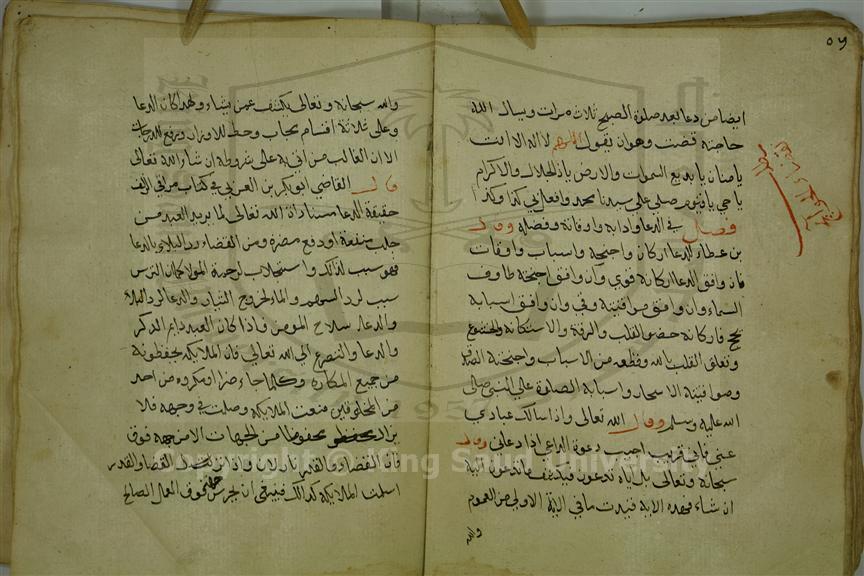 ٥٦
ايضا من دعا بعد صلوة الصبح ثلاث مرات ويسال الله
حاجته قضيت وهو ان يقول اللهم لا اله الا انت
يا منان يا بديع السموات والارض ياذا الجلال والاكرام
يا حي يا قيوم صلي على سيدنا محمد وافعل بي كذا وكذا
فصل في الدعا وادابه واوقاته وفضله وقال
بن عطاء للدعا اركان واجنحة واسباب واوقات
فان وافق الدعا اركانه قوي وان وافق اجنحته طار في
السماء وان وافق مواقيته وفي وان وافق اسبابه
نجح فاركانه حضور القلب والرقة والاستكانة والخشوع
وتعلق القلب بالله وقطعه من الاسباب واجنحته الصدق
ومواقيته الاسحار واسبابه الصلاة على النبي صلى
الله عليه وسلم وقال الله تعالى واذا سالك عبادي
عني فاني قريب اجيب دعوة الداعي اذا دعاني وقال
سبحانه وتعالى بل اياه تدعون فيكشف ما تدعون اليه
ان شاء فهذه الاية قيدت ما في الاية الاولى من العموم
والله
والله سبحانه وتعالى يكشف عمن يشاء ولهذا كان الدعا
وعلى ثلاثة اقسام يجاب وحط للاوزار ورفع للدرجات
الا ان الغالب من اتى به على شروطه ان شاء الله تعالى
قال القاضي ابو بكر بن العربي في كتاب مراقي الزلف
حقيقة الدعا مناداة الله تعالى لما يريد العبد من
جلب منفعة او دفع مضرة ومن القضاء رد البلاء بالدعا
فهو سبب لذلك واستجلاب لرحمة المولا كما ان الترس
سبب لرد السهم والماء لخروج النبات والدعا لرد البلا
والدعاء سلاح المومن فاذا كان العبد دايم الذكر
والدعا والتضرع الى الله تعالى فان الملايكة يحفظونه
من جميع المكاره وكلما جاء ضررا ومكروه من احد
من المخلوقين منعت الملايكة وصلت في وجهه فلا
يزال محفوظا من الجهات الا من جهة فوق
فان القضاء والقدر نازلان واذا نزل القضا والقدر
اسلمت الملايكة كذلك فينبغي ان يحرس فوق العمل الصالح